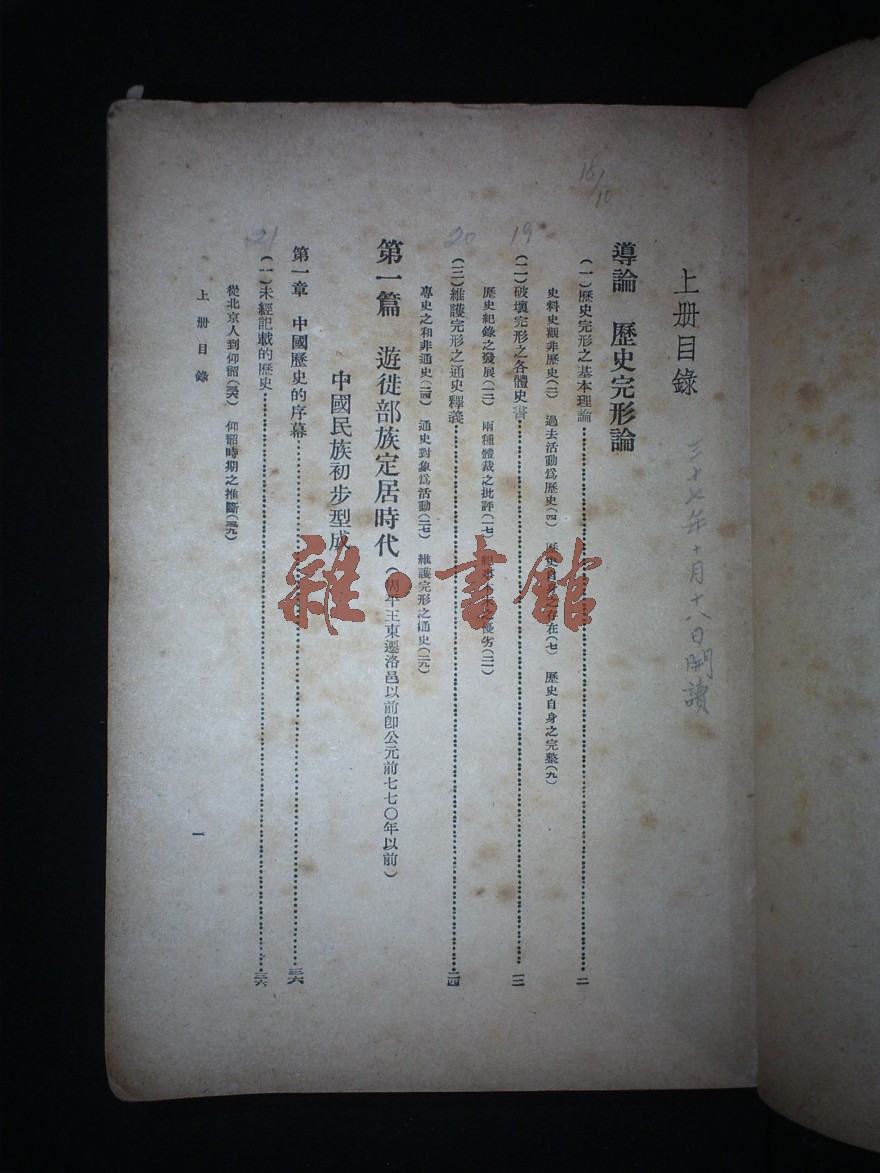 上册目錄
三十七年十月十八日開讀
18/10
導論　歷史完形論
(一)歷史完形之基本理論 二
史料史觀非歷史(二)　過去活動爲歷史(四)　歷史自身之存在(七)　歷史自身之完整(九)
19
(二)破壞完形之各體史書 一三
歷史紀錄之發展(一三)　兩種體裁之批評(一七)　優劣(二一)
20
(三)維護完形之通史釋義 二四
專史之和非通史(二四)　通史對象爲活動(二七)　維護完形之通史(二九)
第一篇　遊徙部族定居時代(周平王東遷洛邑以前卽公元前七七〇年以前)
中國民族初步型成
第一章　中國歷史的序幕 三六
21
(一)未經記載的歷史 三六
從北京人到仰韶(三六)　仰韶時期之推斷(三九)
上册目錄
一
雜·書館